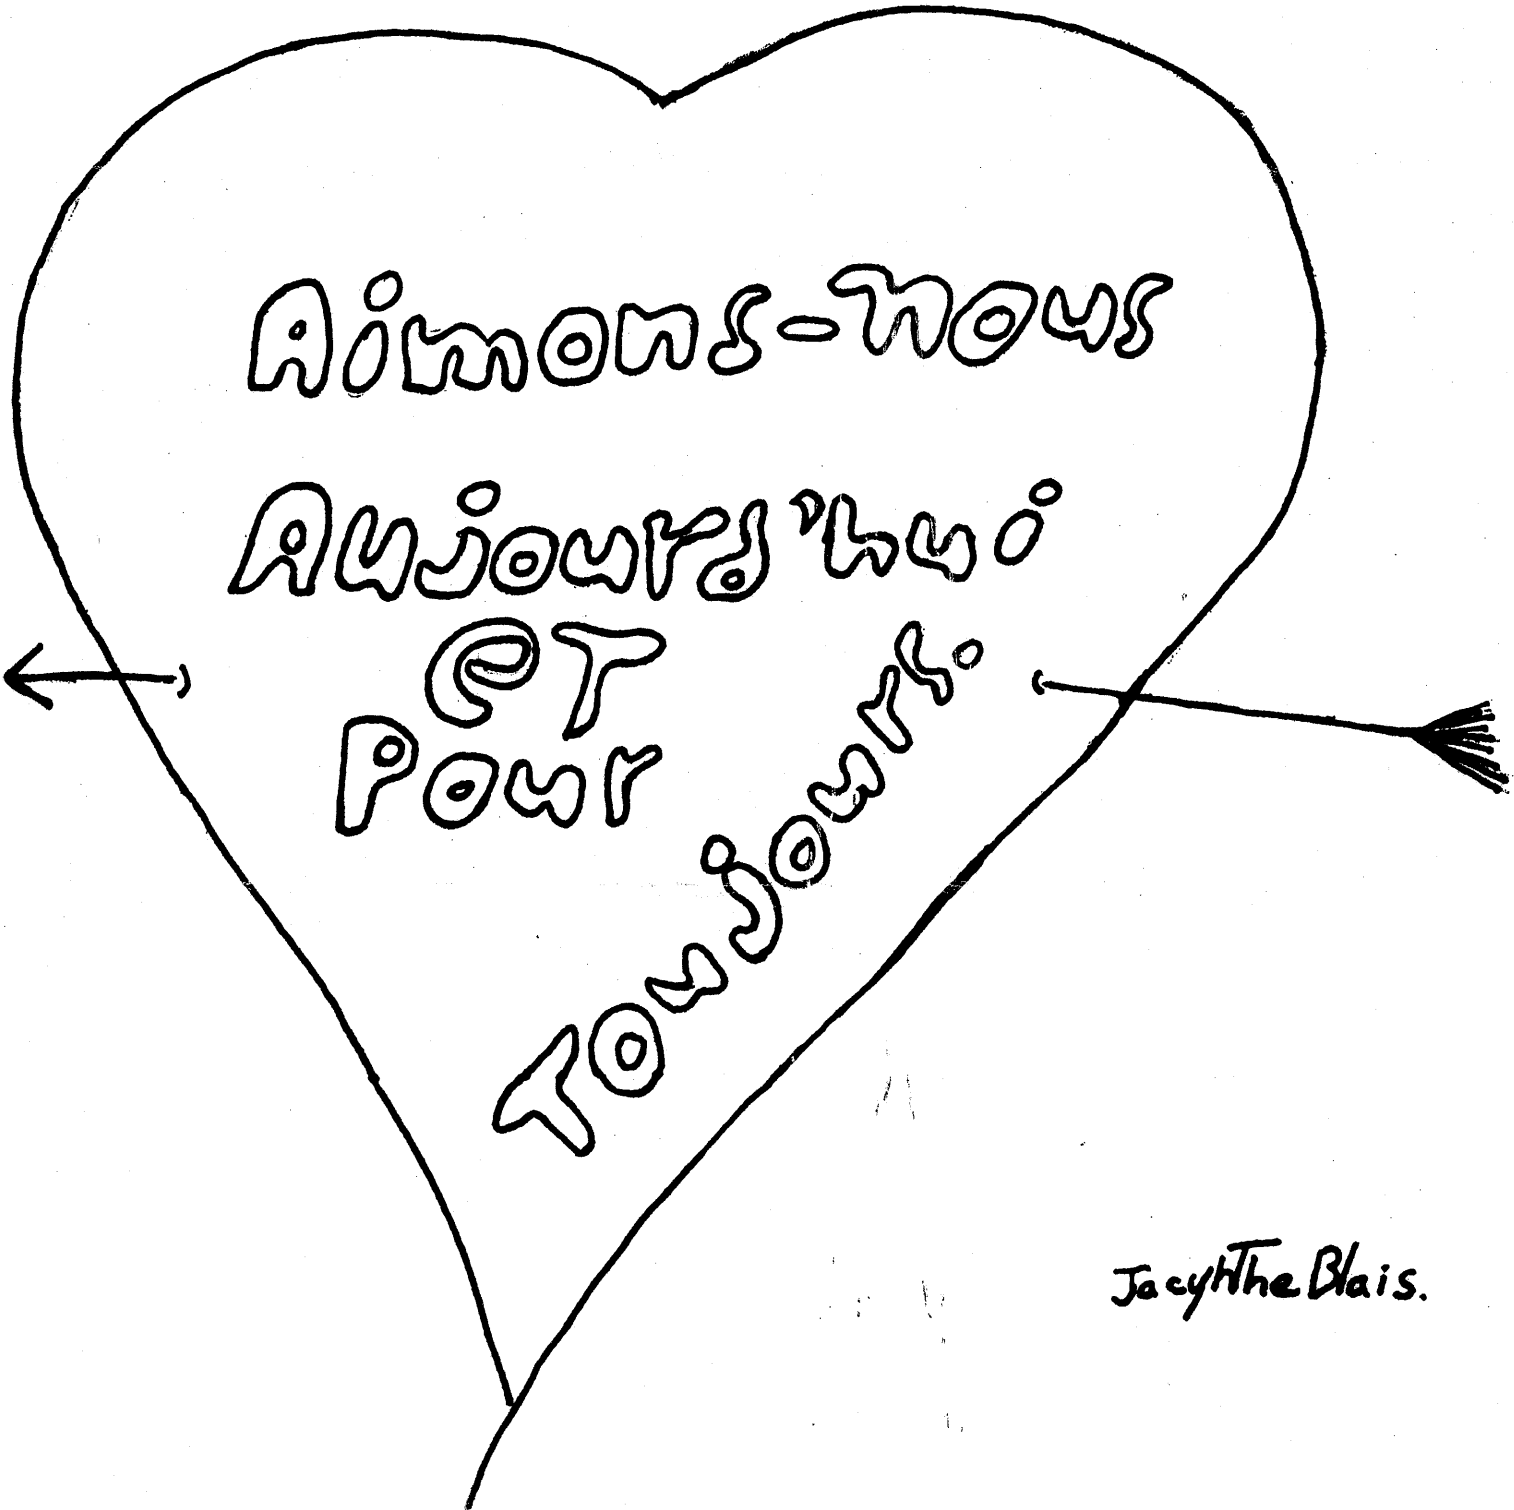 Aimons-nous
Aujourd'hui
et
Pour
Toujours.
JacynThe Blais.